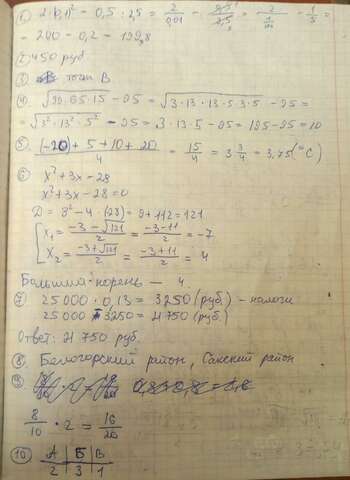 ① 2 : 0,1² - 0,5 : 2,5 = 2/0,01 - = 2/(1/100) - 1/5 =
= 200 - 0,2 = 199,8
② 450 руб
③ точн В
④ √39·65·15 - 95 = √3·13·13·5·3·5 - 95 =
= √3²·13²·5² - 95 = 3·13·5 - 95 = 195 - 95 = 10
⑤ (-20)+5+10+20 / 4 = 15/4 = 3 3/4 = 3,75 (°C)
⑥ x²+3x-28
x²+3x-28=0
D = 3²-4·(28) = 9+112=121
x₁ = -3-√121 / 2 = -3-11 / 2 = -7
x₂ = -3+√121 / 2 = -3+11 / 2 = 4
Больший корень — 4
⑦ 25000 · 0,13 = 3250 (руб.) - налоги
25000 - 3250 = 21750 (руб.)
Ответ: 21 750 руб.
⑧ Белогорский район, Сакский район
⑨
8/10 · 2 = 16/20
⑩ А | Б | В
2 | 3 | 1